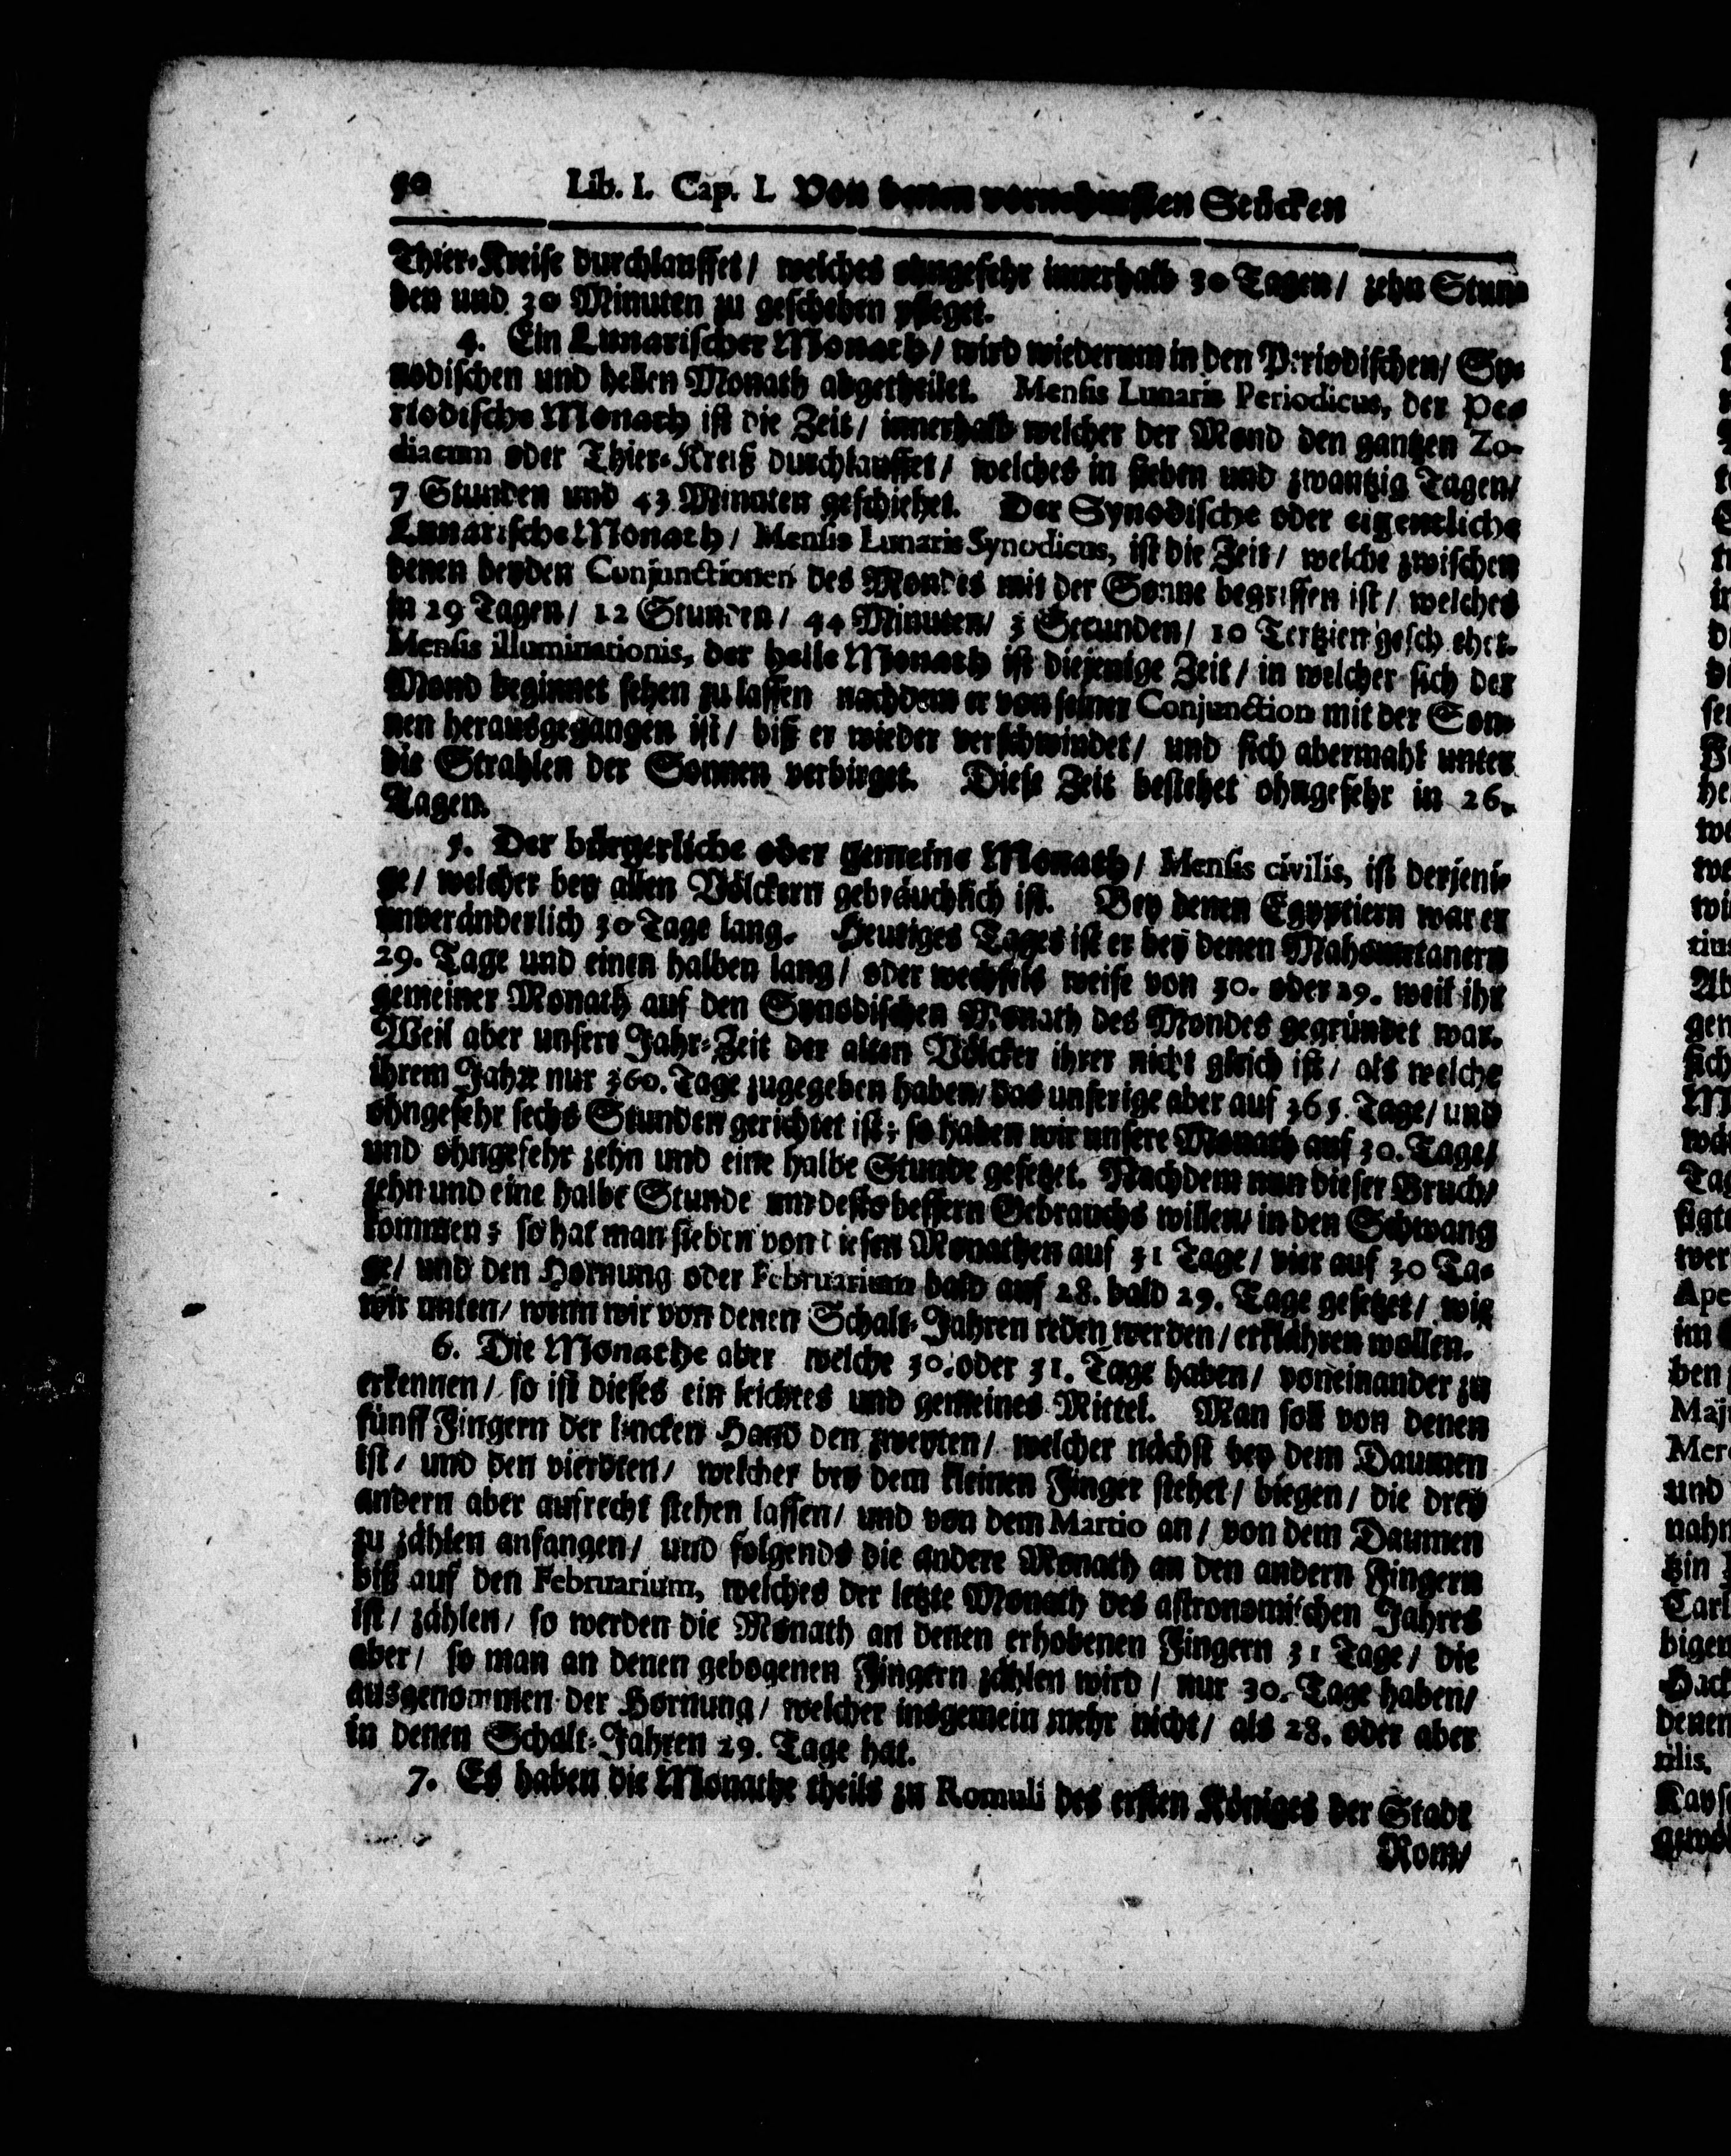 50 Lib. I. Cap. I. Von denen vornehmsten Stücken
Thier-Kreise durchlauffet/ welches ohngefehr innerhalb 30 Tagen/ zehn Stun-
den und 30 Minuten zu geschehen pfleget.
4. Ein Lunarischer Monath/ wird wiederum in den Periodischen/ Sy-
nodischen und hellen Monath abgetheilet. Mensis Lunaris Periodicus, der Pe-
riodische Monath ist die Zeit/ innerhalb welcher der Mond den gantzen Zo-
diacum oder Thier-Kreiß durchlauffet/ welches in sieben und zwantzig Tagen/
7 Stunden und 43 Minuten geschiehet. Der Synodische oder eigentliche
Lunarische Monath/ Mensis Lunaris Synodicus, ist die Zeit/ welche zwischen
denen beyden Conjunctionen des Mondes mit der Sonne begriffen ist/ welches
in 29 Tagen/ 12 Stunden/ 44 Minuten/ 3 Secunden/ 10 Tertzien gesch ehet.
Mensis illuminationis, der helle Monath ist diejenige Zeit/ in welcher sich der
Mond beginnet sehen zu lassen nachdem er von seiner Conjunction mit der Son-
nen herausgegangen ist/ biß er wieder verschwindet/ und sich abermahl unter
die Strahlen der Sonnen verbirget. Diese Zeit bestehet ohngefehr in 26.
Tagen.
5. Der bürgerliche oder gemeine Monath/ Mensis civilis, ist derjeni-
ge/ welcher bey allen Völckern gebräuchlich ist. Bey denen Egyptiern war er
unveränderlich 30 Tage lang. Heutiges Tages ist er bey denen Mahometanern
29. Tage und einen halben lang/ oder wechsels weise von 30. oder 29. weil ihr
gemeiner Monath auf den Synodischen Monath des Mondes gegründet war.
Weil aber unsere Jahr-Zeit der alten Völcker ihrer nicht gleich ist/ als welche
ihrem Jahre nur 360. Tage zugegeben haben/ das unserige aber auf 365. Tage/ und
ohngefehr sechs Stunden gerichtet ist; so haben wir unsere Monath auf 30. Tage/
und ohngefehr zehn und eine halbe Stunde gesetzet. Nachdem nun dieser Bruch/
zehn und eine halbe Stunde um desto bessern Gebrauchs willen/ in den Schwang
kommen; so hat man sieben von diesen Monathen auf 31 Tage/ vier auf 30 Ta-
ge/ und den Hornung oder Februarium bald auf 28. bald 29. Tage gesetzet/ wie
wir unten/ wenn wir von denen Schalt-Jahren reden werden/ erklähren wollen.
6. Die Monathe aber welche 30. oder 31. Tage haben/ voneinander zu
erkennen/ so ist dieses ein leichtes und gemeines Mittel. Man soll von denen
fünff Fingern der lincken Hand den zweyten/ welcher nächst bey dem Daumen
ist/ und den vierdten/ welcher bey dem kleinen Finger stehet/ biegen/ die drey
andern aber aufrecht stehen lassen/ und von dem Martio an/ von dem Daumen
zu zählen anfangen/ und folgends die andere Monath an den andern Fingern
biß auf den Februarium, welches der letzte Monath des astronomischen Jahres
ist/ zählen/ so werden die Monath an denen erhobenen Fingern 31 Tage/ die
aber/ so man an denen gebogenen Fingern zählen wird/ nur 30. Tage haben/
ausgenommen der Hornung/ welcher insgemein mehr nicht/ als 28. oder aber
in denen Schalt-Jahren 29. Tage hat.
7. Es haben die Monathe theils zu Romuli des ersten Königes der Stadt
Rom/